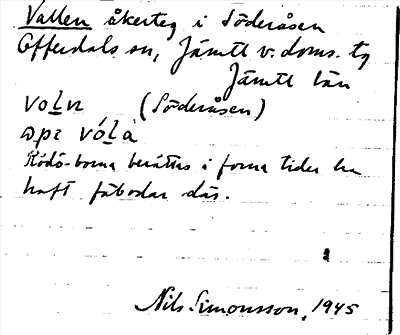 Vallen åkerteg i Söderåsen
Offerdals sn, Jämtl v. doms. tg
Jämtl län
voḻn (Söderåsen)
vóḻà
Rödö-borna berättas i forna tider ha
haft fäbodar där.
Nils Simonsson, 1945